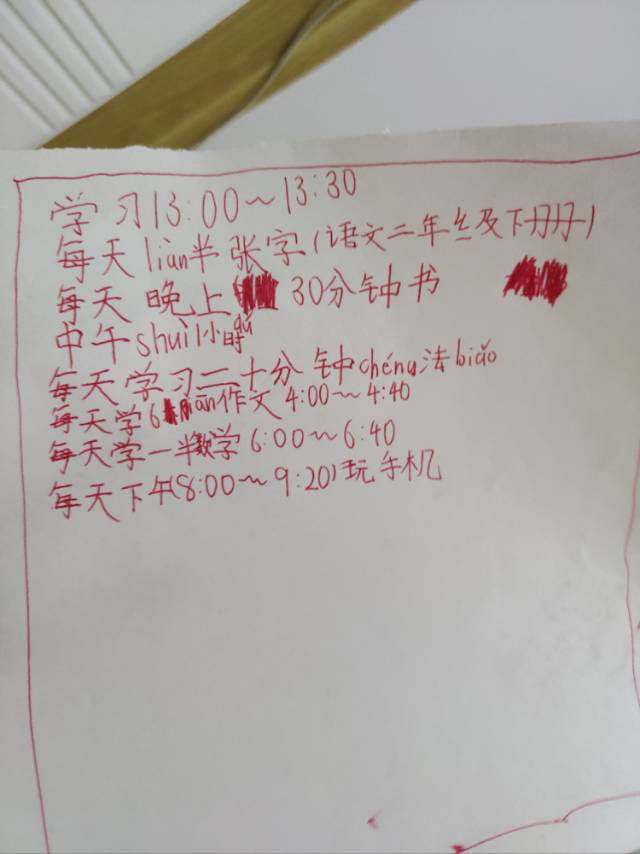 学习13:00~13:30
每天liàn半张字(语文二年级下册)
每天晚上30分钟书
中午shuì1小时
每天学习二十分钟chéng法biǎo
每天学6piān作文4:00~4:40
每天学一半数学6:00~6:40
每天下午(8:00~9:20)玩手机